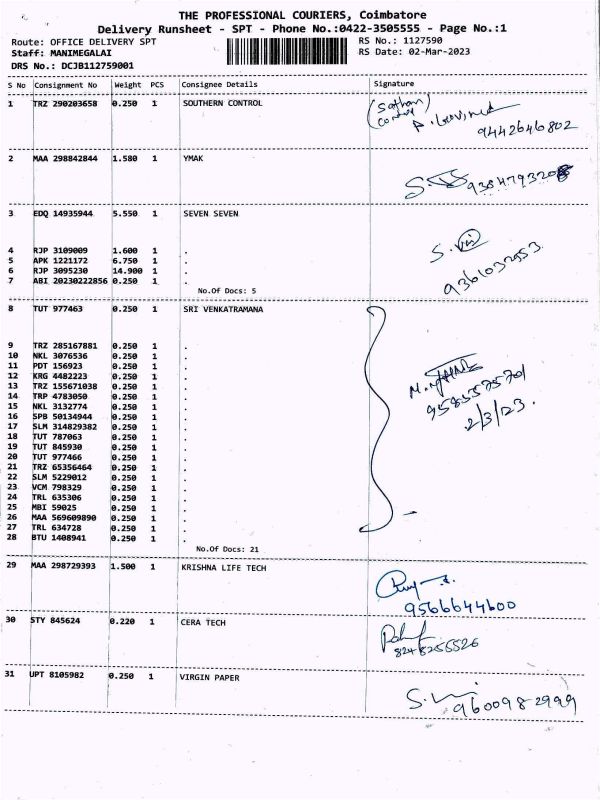 THE PROFESSIONAL COURIERS, Coimbatore
Delivery Runsheet - SPT - Phone No.:0422-3505555 - Page No.:1
Route: OFFICE DELIVERY SPT
RS No.: 1127590
Staff: MANIMEGALAI
RS Date: 02-Mar-2023
DRS No.: DCJB112759001
S No Consignment No Weight PCS Consignee Details Signature
1 TRZ 290203658 0.250 1 SOUTHERN CONTROL
9442646802
2 MAA 298842844 1.580 1 YMAK
3 EDQ 14935944 5.550 1 SEVEN SEVEN
4 RJP 3109009 1.600 1 .
5 APK 1221172 6.750 1 .
6 RJP 3095230 14.900 1 .
7 ABI 20230222856 0.250 1 .
No.Of Docs: 5
8 TUT 977463 0.250 1 SRI VENKATRAMANA
9 TRZ 285167881 0.250 1 .
10 NKL 3076536 0.250 1 .
11 PDT 156923 0.250 1 .
12 KRG 4482223 0.250 1 .
13 TRZ 155671038 0.250 1 .
14 TRP 4783050 0.250 1 .
15 NKL 3132774 0.250 1 .
16 SPB 50134944 0.250 1 .
17 SLM 314829382 0.250 1 .
18 TUT 787063 0.250 1 .
19 TUT 845930 0.250 1 .
20 TUT 977466 0.250 1 .
21 TRZ 65356464 0.250 1 .
22 SLM 5229012 0.250 1 .
23 VCM 798329 0.250 1 .
24 TRL 635306 0.250 1 .
25 MBI 59025 0.250 1 .
26 MAA 569609890 0.250 1 .
27 TRL 634728 0.250 1 .
28 BTU 1408941 0.250 1 .
2/3/23.
No.Of Docs: 21
29 MAA 298729393 1.500 1 KRISHNA LIFE TECH
9566644600
30 STY 845624 0.220 1 CERA TECH
8248255526
31 UPT 8105982 0.250 1 VIRGIN PAPER
9600982999